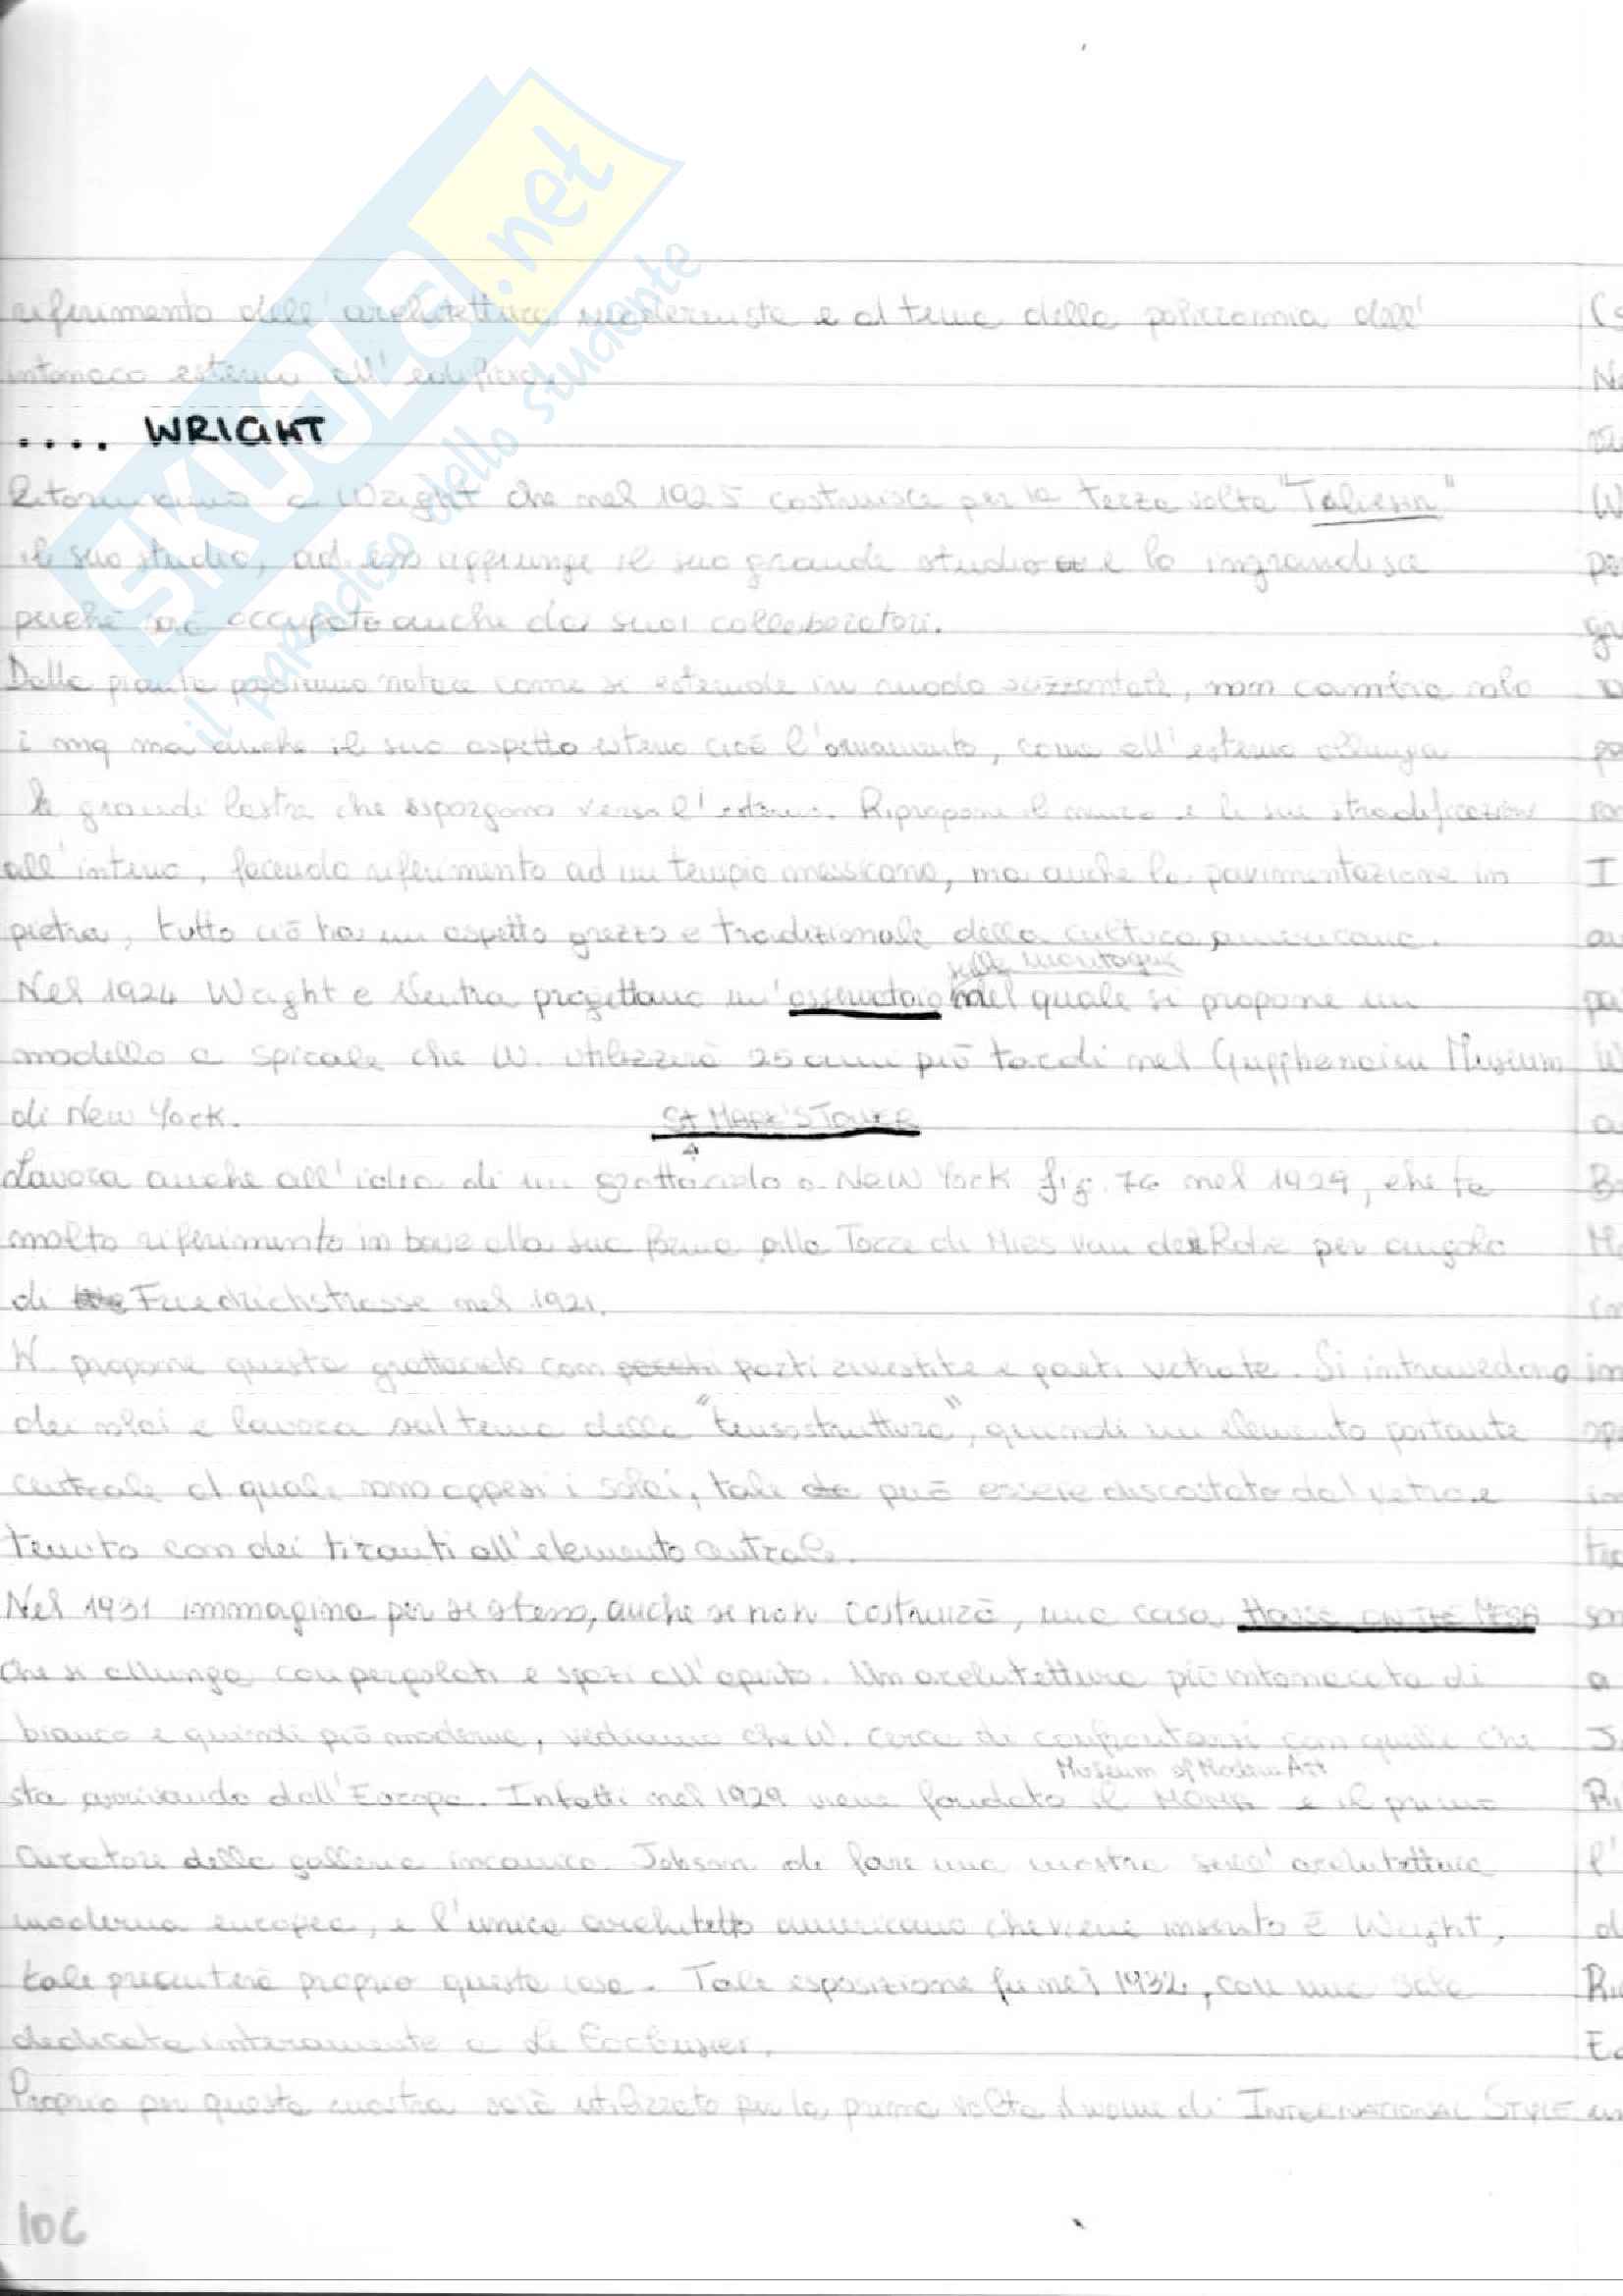 SKUOLA.net
il paradiso dello studente
riferimento dell'architettura modernista e al tema della policromia dell'
intonaco esterno all'edificio.
.... WRIGHT
Ritorniamo a Wright che nel 1925 costruisce per la terza volta "Taliesin"
il suo studio, ad esso aggiunge il suo grande studio e lo ingrandisce
perché occupato anche dai suoi collaboratori.
Dalla pianta possiamo notare come si estende in modo orizzontale, non cambia solo
i mq ma anche il suo aspetto esterno cioè l'ornamento, come all'esterno allunga
le grandi lastre che sporgono verso l'esterno. Ripropone il muro e le sue stradificazioni
all'interno, facendo riferimento ad un tempio messicano, ma anche la pavimentazione in
pietra, tutto ciò ha un aspetto grezzo e tradizionale della cultura americana.
sulle montagne
Nel 1924 Wright e Neutra progettano un'osservatorio nel quale si propone un
modello a spirale che W. utilizzerà 25 anni più tardi nel Gugghenaim Museum
di New York.
St MARK'S TOWER
Lavora anche all'idea di un grattacielo a New York fig. 76 nel 1929, che fa
molto riferimento in base alla sua forma alla Torre di Mies van der Rohe per angolo
di Friedrichstrasse nel 1921.
W. propone questo grattacielo con parti rivestite e parti vetrate. Si intravedono
dei solai e lavora sul tema della "tensostruttura", quindi un elemento portante
centrale al quale sono appesi i solai, tale può essere discostato dal vetro e
tenuto con dei tiranti all'elemento centrale.
Nel 1931 immagina per se stesso, anche se non costruirà, una casa HOUSE ON THE MESA
che si allunga con pergolati e spazi all'aperto. Un architettura più intonacata di
bianco e quindi più moderna, vediamo che W. cerca di confrontarsi con quello che
Museum of Modern Art
sta arrivando dall'Europa. Infatti nel 1929 viene fondato il MOMA e il primo
curatore della galleria incarica Johson di fare una mostra sull'architettura
moderna europea, e l'unico architetto americano che viene inserito è Wright,
tale presenterà proprio questa casa. Tale esposizione fu nel 1932, con una sala
dedicata interamente a Le Corbusier.
Proprio per questa mostra sarà utilizzato per la prima volta il nome di INTERNATIONAL STYLE
106